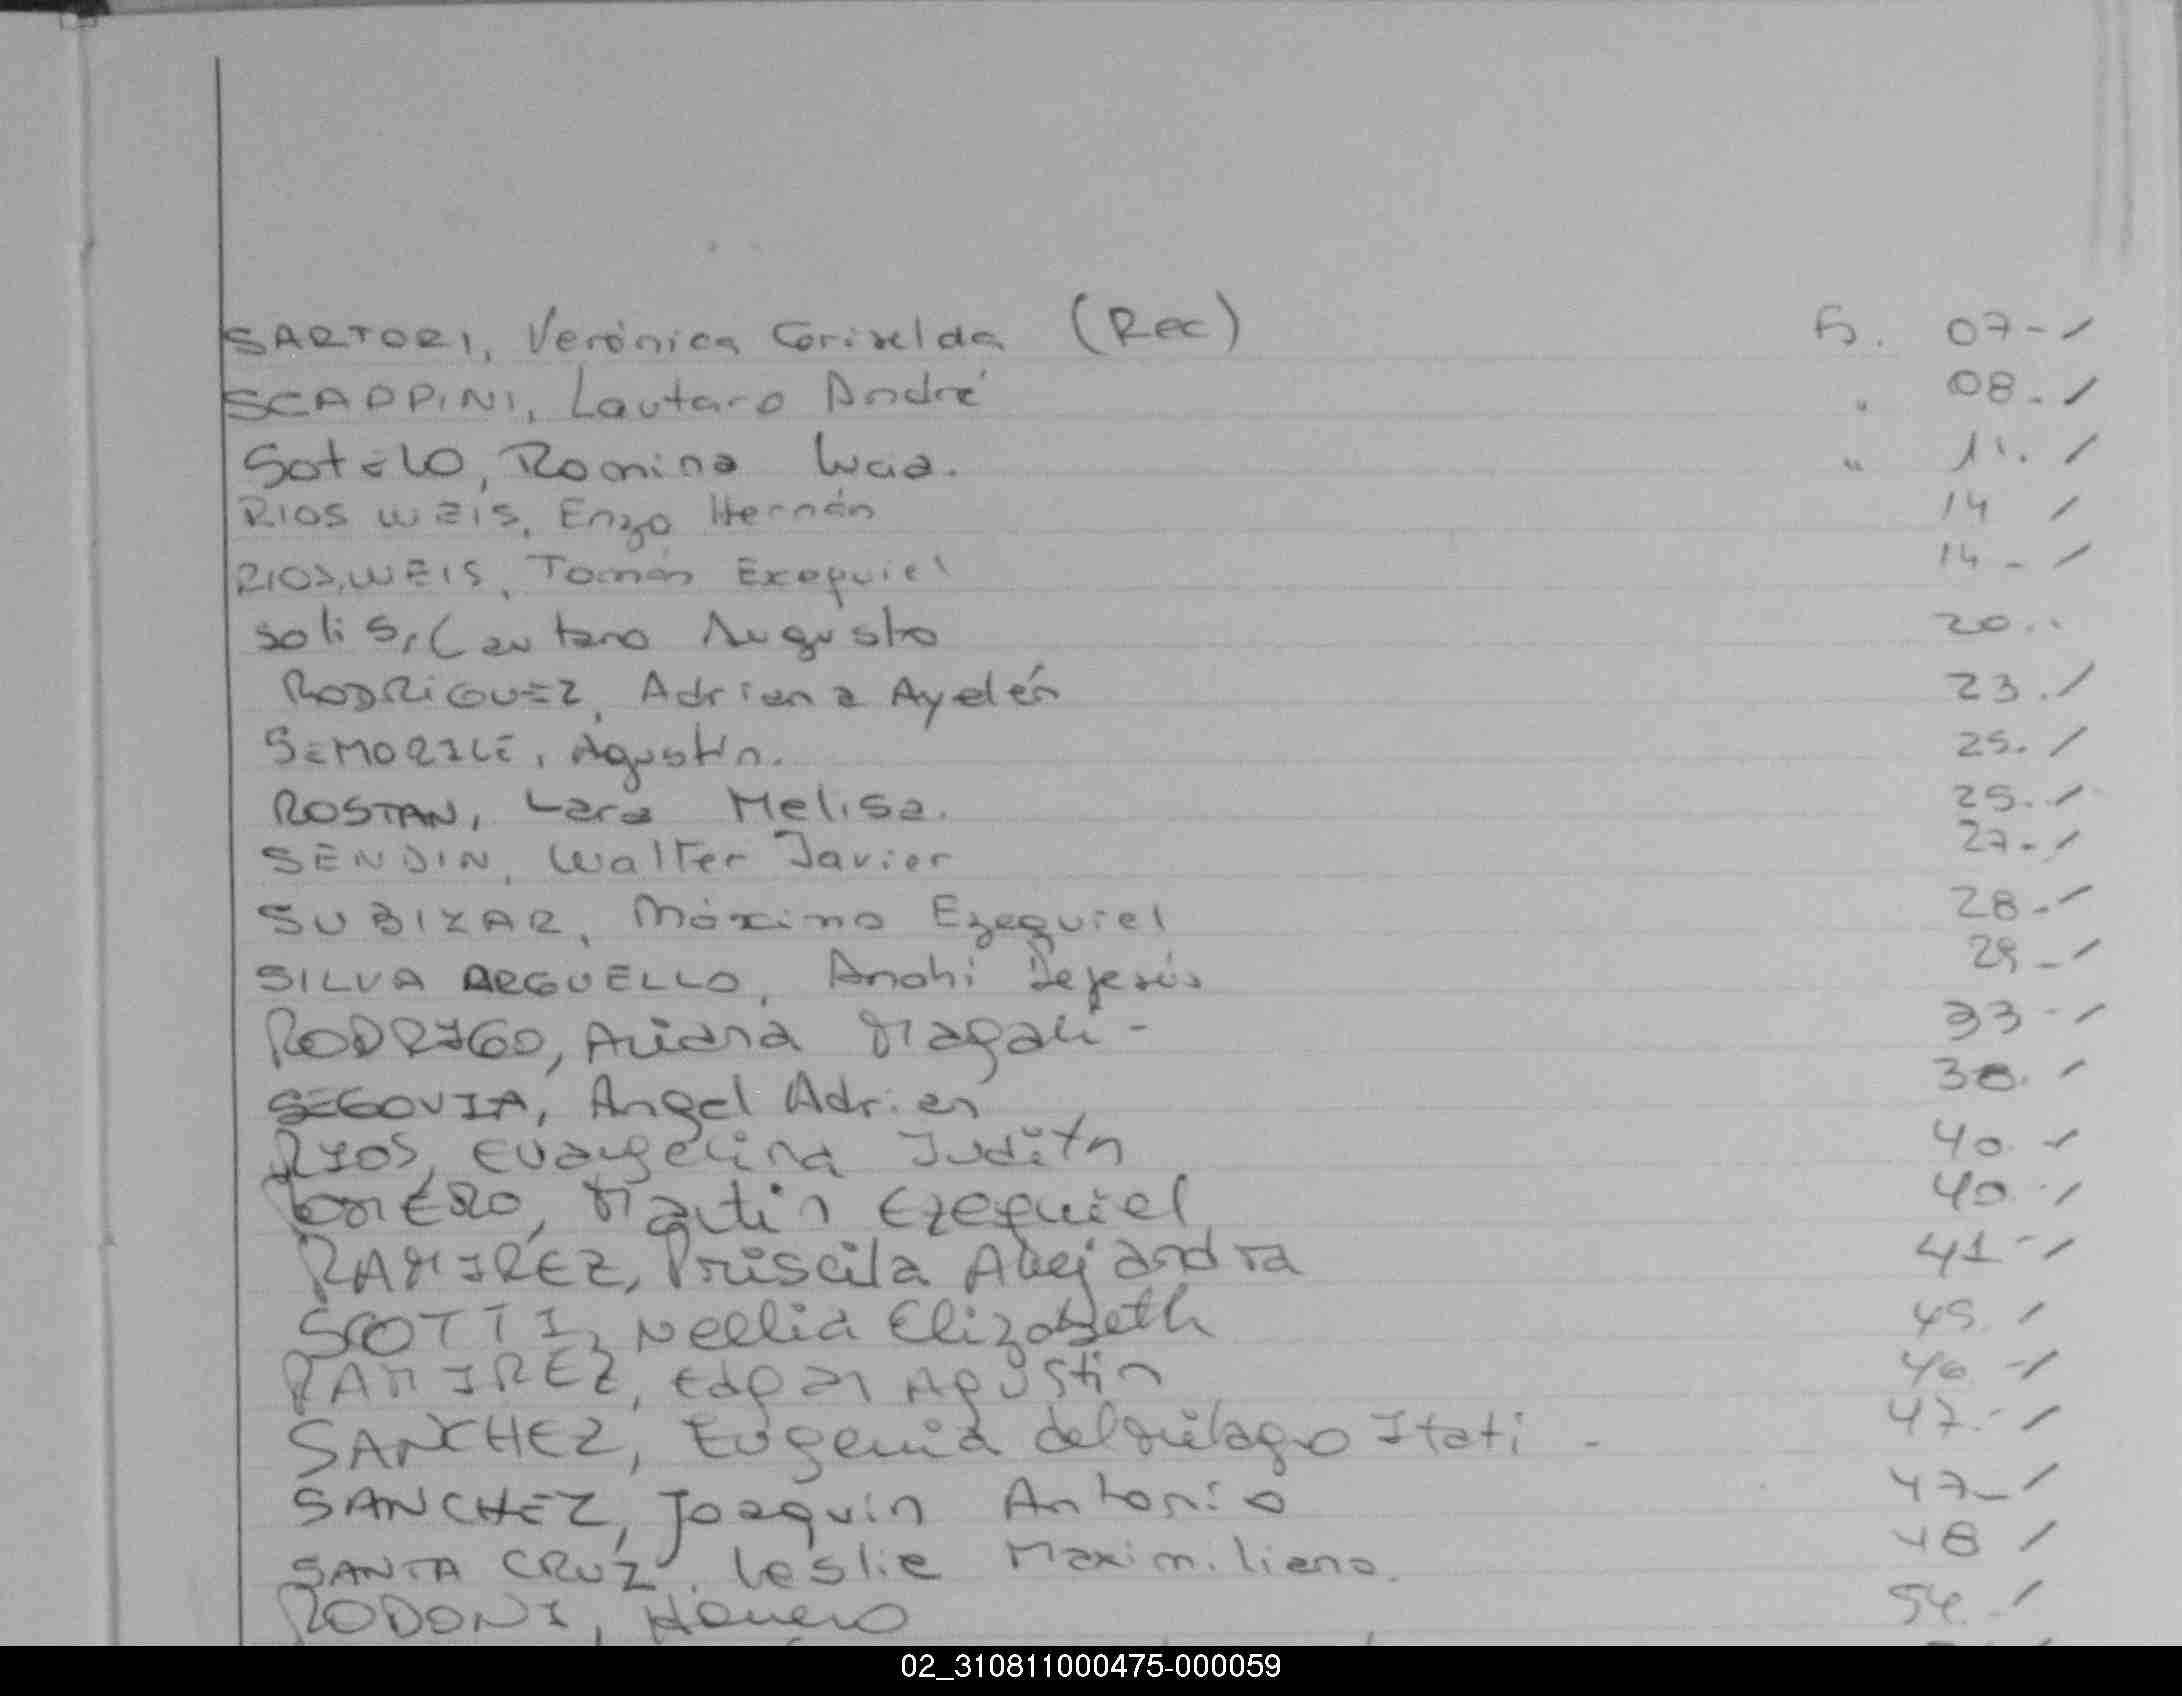 SARTORI, Verónica Griselda (Rec) Fs. 07-/
SCAPPINI, Lautaro André " 08-/
Sotelo, Romina Lucia. " 11. /
RIOS WEIS, Enzo Hernán 14 /
RIOS WEIS, Tomás Exequiel 14-/
Solis, Lautaro Augusto 20..
RODRIGUEZ, Adriana Ayelén 23./
SEMORILE, Agustín. 25. /
ROSTAN, Lara Melisa. 25./
SENDIN, Walter Javier 27-/
SUBIZAR, Máximo Ezequiel 28-/
SILVA ARGUELLO, Anahi Dejesús 29-/
RODRIGO, Ariana Magali- 33-/
SEGOVIA, Angel Adrien 38. /
RIOS, Evangelina Judith 40-/
ROMERO, Martin Ezequiel 40-/
RAMIREZ, Priscila Alejandra 41-/
SCOTTI, Nellia Elizabeth 45. /
RAMIREZ, Edgar Agustin 46-/
SANCHEZ, Eugenia del Milagro Itati - 47-/
SANCHEZ, Joaquín Antonio 47-/
SANTA CRUZ, Leslie Maximiliano. 48 /
RODONI, 54-/
02_310811000475-000059